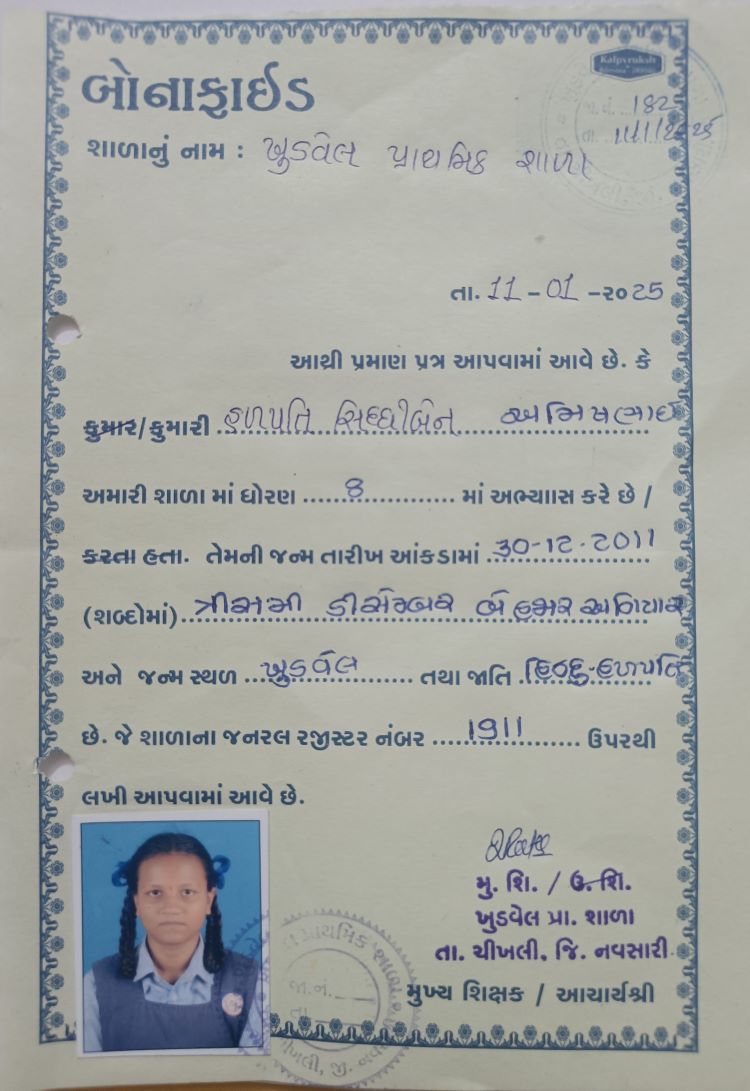 Kalpvruksh
બોનાફાઈડ
જા.નં. ...182
તા. ...11/1/2025
શાળાનું નામ : ખુડવેલ પ્રાથમિક શાળા
તા. 11 - 01 - ૨૦ 25
આથી પ્રમાણ પત્ર આપવામાં આવે છે. કે
કુમાર/કુમારી હળપતિ સિધ્ધીબેન અમિષભાઈ
અમારી શાળા માં ધોરણ ......8............ માં અભ્યાસ કરે છે /
કરતા હતા. તેમની જન્મ તારીખ આંકડામાં 30-12-2011
(શબ્દોમાં) ત્રીસમી ડીસેમ્બર બે હજાર અગિયાર
અને જન્મ સ્થળ ખુડવેલ તથા જાતિ હિન્દુ-હળપતિ
છે. જે શાળાના જનરલ રજીસ્ટર નંબર 1911 ઉપરથી
લખી આપવામાં આવે છે.
મુ. શિ. / ઉ. શિ.
ખુડવેલ પ્રા. શાળા
તા. ચીખલી, જિ. નવસારી.
મુખ્ય શિક્ષક / આચાર્યશ્રી
પ્રાથમિક શાળા
જા.નં.
તા.